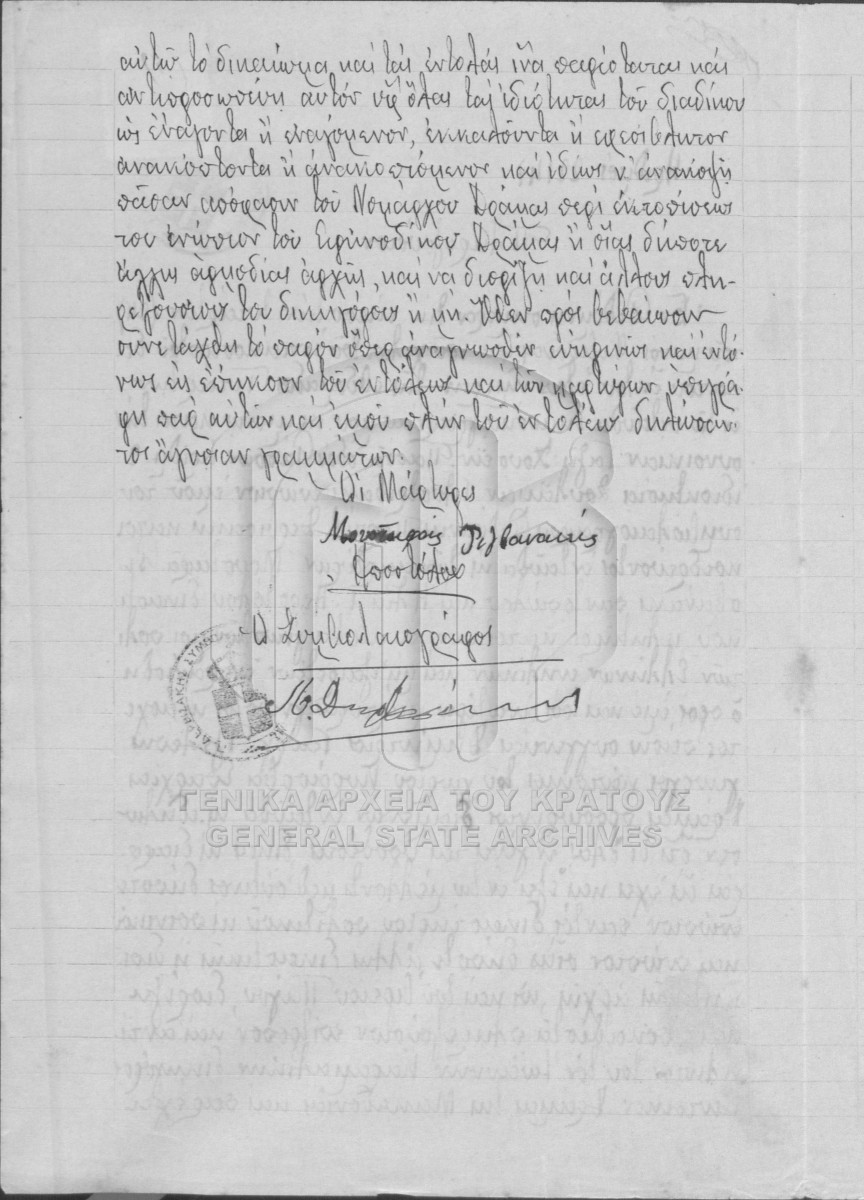 αὐτῶν τὸ δικαίωμα καὶ τὰς ἐντολὰς ἵνα παρίσταται καὶ
ἀντιπροσωπεύῃ αὐτὸν ὑφ' ὅλας τὰς ἰδιότητας τοῦ διαδίκου
ὡς ἐνάγοντα ἢ ἐναγόμενον, ἐκκαλοῦντα ἢ ἐφεσίβλητον
ἀνακόπτοντα ἢ ἀνακοπτόμενον καὶ ἰδίως ν' ἀνακόψῃ
πᾶσαν ἀπόφασιν τοῦ Νομάρχου Δράμας περὶ ἐκτοπίσεως
του ἐνώπιον τοῦ Εἰρηνοδίκου Δράμας ἢ οἵας δήποτε
ἄλλης ἁρμοδίας ἀρχῆς, καὶ νὰ διορίζῃ καὶ ἄλλους πλη-
ρεξουσίους του δικηγόρους ἢ μή. Ὅθεν πρὸς βεβαίωσιν
συνετάχθη τὸ παρὸν ὅπερ ἀναγνωσθὲν εὐκρινῶς καὶ ἐντό-
νως εἰς ἐπήκοον τοῦ ἐντολέως καὶ τῶν μαρτύρων ὑπεγρά-
φη παρ' αὐτῶν καὶ ἐμοῦ πλὴν τοῦ ἐντολέως δηλώσαν-
τος ἄγνοιαν γραμμάτων.
Οἱ Μάρτυρες
Ἀποστόλου
Ὁ Συμβολαιογράφος
ΓΕΝΙΚΑ ΑΡΧΕΙΑ ΤΟΥ ΚΡΑΤΟΥΣ
GENERAL STATE ARCHIVES